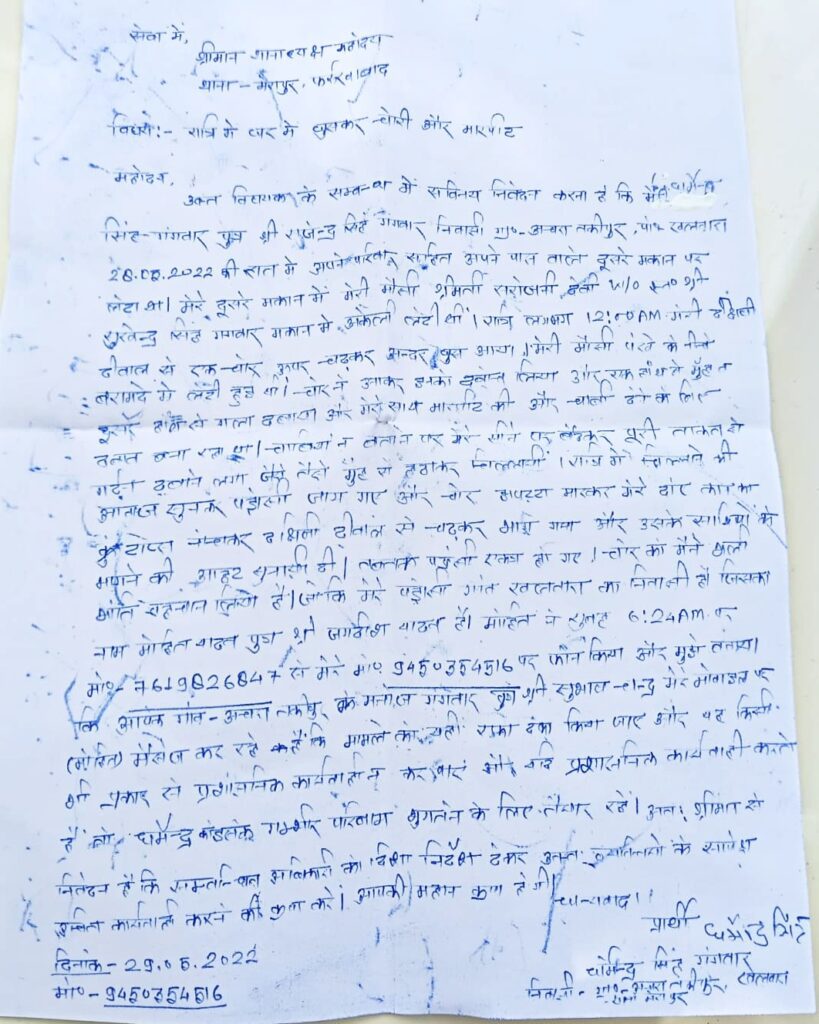 सेवा में,
श्रीमान थानाध्यक्ष महोदय
थाना - मेरापुर, फर्रुखाबाद
विषय:- रात्रि मे घर मे घुसकर चोरी और मारपीट
महोदय,
उक्त विषयक के सम्बन्ध में सविनय निवेदन करना है कि मैं धर्मेन्द्र
सिंह गंगवार पुत्र श्री राजेन्द्र सिंह गंगवार निवासी ग्रा०-अचरा तकीपुर, पो०
2022 की रात मे अपने परिवार सहित अपने पास वाले दूसरे मकान पर
लेटा था। मेरे दूसरे मकान में मेरी मौसी श्रीमती सरोजनी देवी W/O स्व० श्री
सुरेन्द्र सिंह गंगवार मकान मे अकेली लेटी थीं। रात्रि लगभग AM
दीवाल से एक चोर ऊपर चढ़कर अन्दर घुस आया। मेरी मौसी पंखे के नीचे
बरामदे मे लेटी हुई थीं। चोर ने आकर इनको दबोच लिया और एक हाथ से मुँह व
दूसरे हाथ से गला दबाया और मेरे साथ मारपीट की और चाबी देने के लिए
दबाव बना रहा था। चाबियां न बताने पर मेरे सीने पर बैठकर पूरी ताकत से
गर्दन दबाने लगा जैसे तैसे मुँह से हटाकर चिल्लायी। रात्रि मे चिल्लाने की
आवाज सुनकर पड़ोसी जाग गए और चोर झपट्टा मारकर मेरे
दक्षिणी दीवाल से चढ़कर भाग गया और उसके साथियों के
भागने की आहट सुनायी दी। तबतक पड़ोसी एकत्र हो गए। चोर को मैने भली
भांति पहचान लिया है। जो कि मेरे पड़ोसी गांव का निवासी है जिसका
नाम मोहित यादव पुत्र श्री जगदीश यादव है। मोहित ने सुबह 6:24AM. पर
मो०- 7619826847 से मेरे मो० 9450354516 पर फोन किया और मुझे बताया।
कि आपके गांव - अचरा तकीपुर के मनोज गंगवार पुत्र श्री सुभाष चन्द्र मेरे मोबाइल पर
(मोहित) मैसेज कर रहे हैं कि मामले को यही रफा दफा किया जाए और वह किसी
भी प्रकार से प्रशासनिक कार्यवाही न कर पाएं और यदि प्रशासनिक कार्यवाही करते
हैं तो धर्मेन्द्र गम्भीर परिणाम भुगतने के लिए तैयार रहें। अतः श्रीमान से
निवेदन है कि सम्बन्धित अधिकारी को दिशा निर्देश देकर उक्त व्यक्तियों के सापेक्ष
उचित कार्यवाही करने की कृपा करें। आपकी महान कृपा होगी।
धन्यवाद।।
प्रार्थी धर्मेन्द्र सिंह
धर्मेन्द्र सिंह गंगवार
दिनांक - 29.05.2022
निवासी - ग्रा०- अचरा तकीपुर,
मो० - 9450354516
थाना मेरापुर